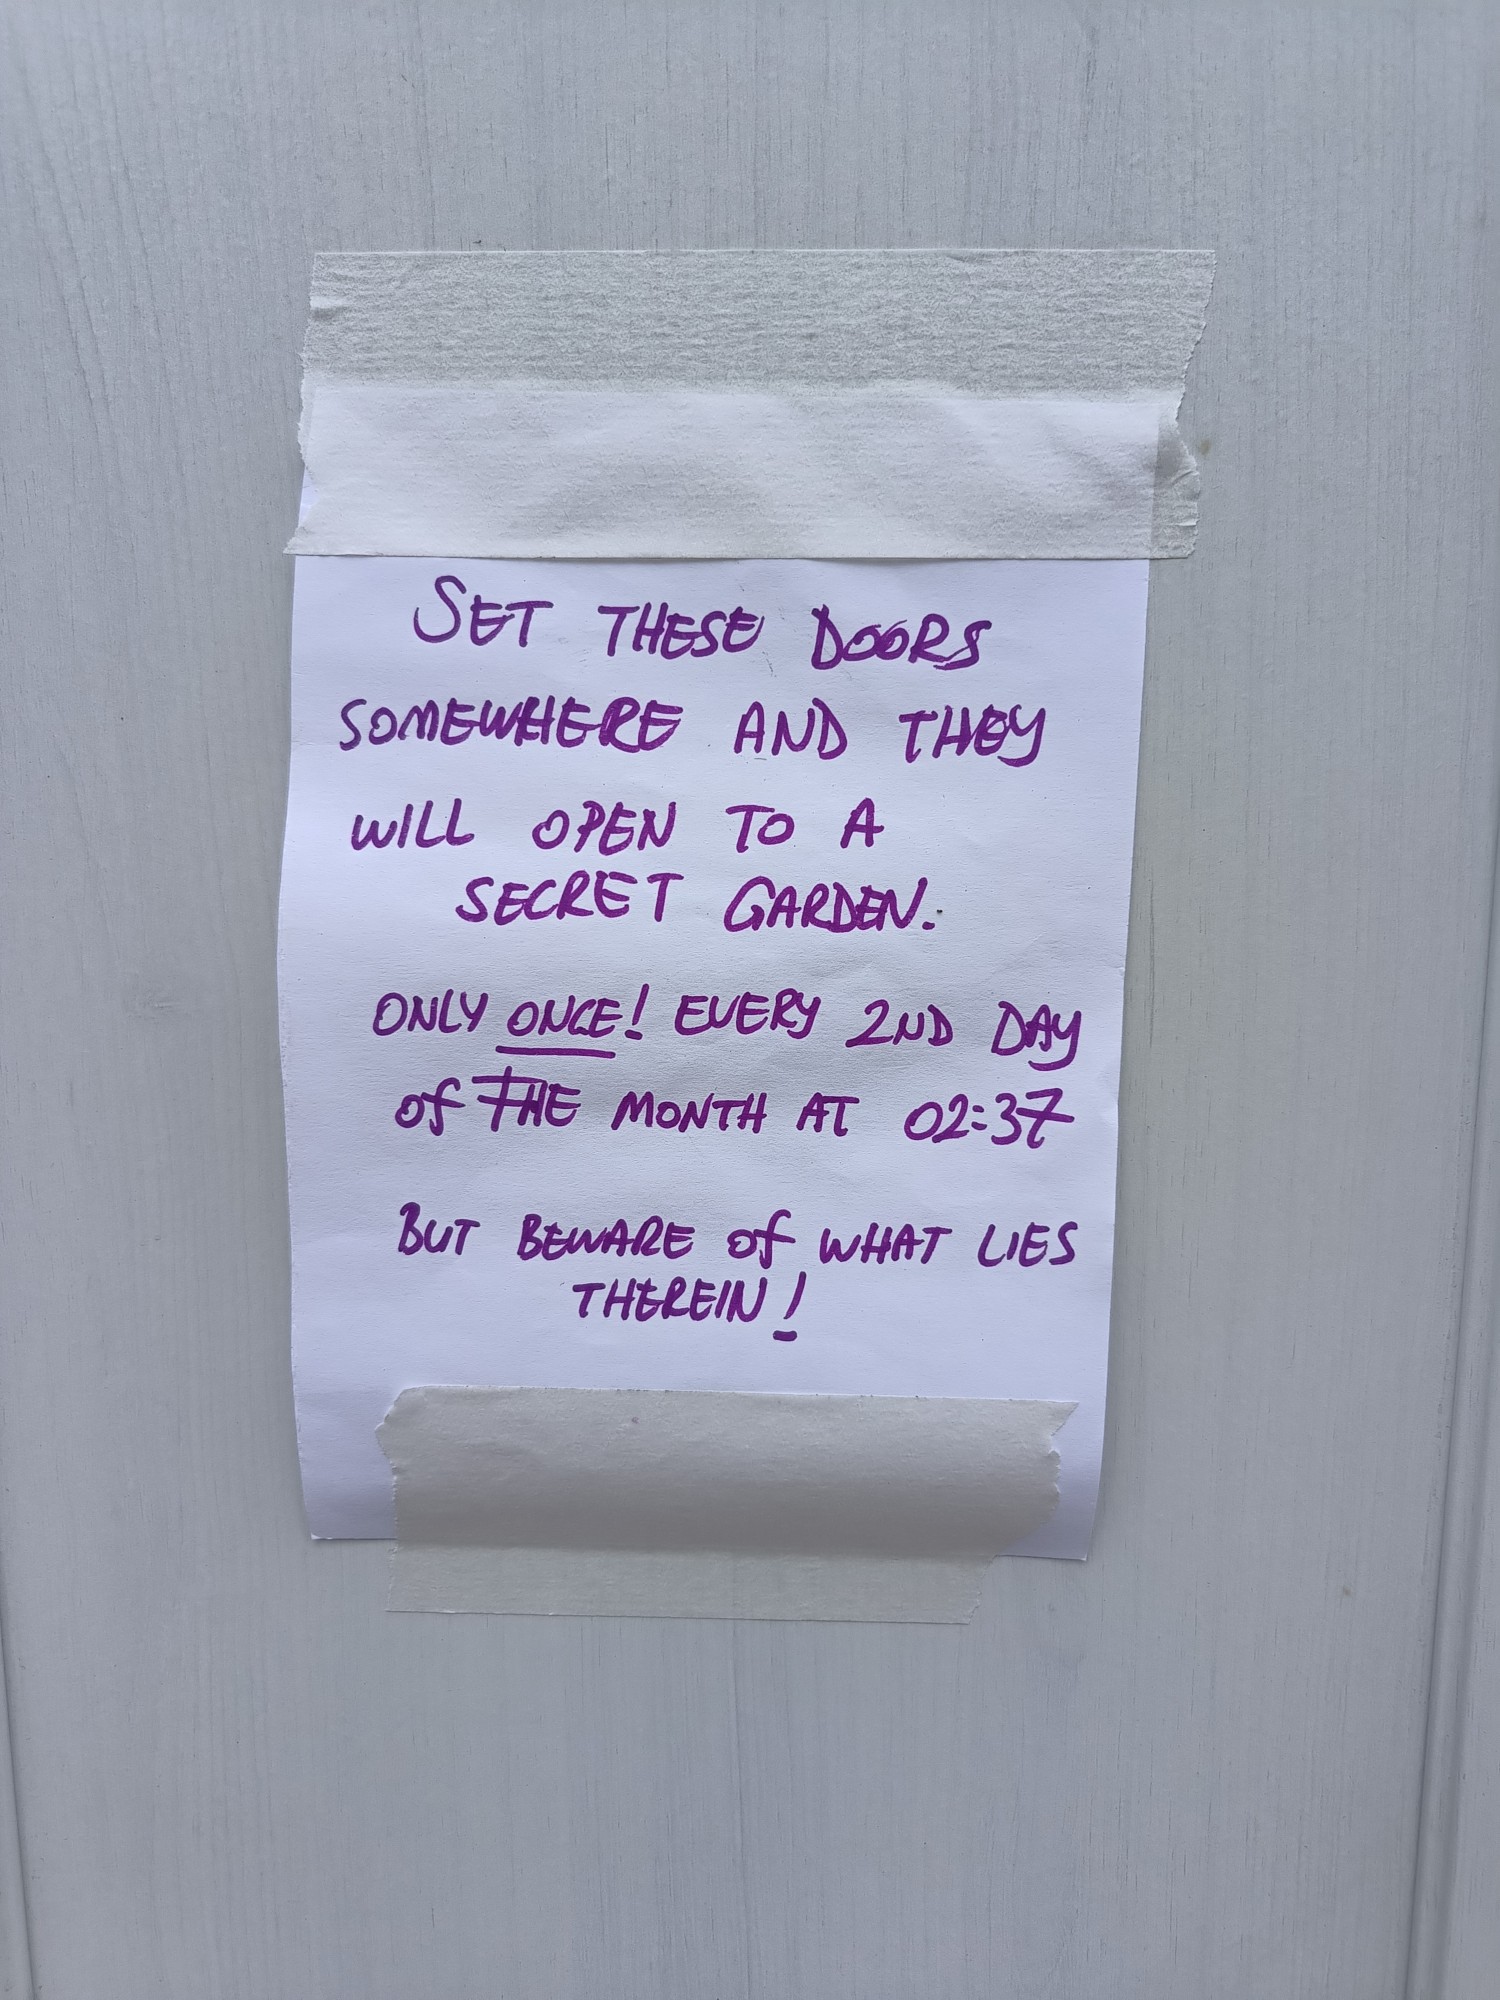 SET THESE DOORS
SOMEWHERE AND THEY
WILL OPEN TO A
SECRET GARDEN.
ONLY ONCE! EVERY 2ND DAY
of THE MONTH AT 02:37
BUT BEWARE of WHAT LIES
THEREIN!